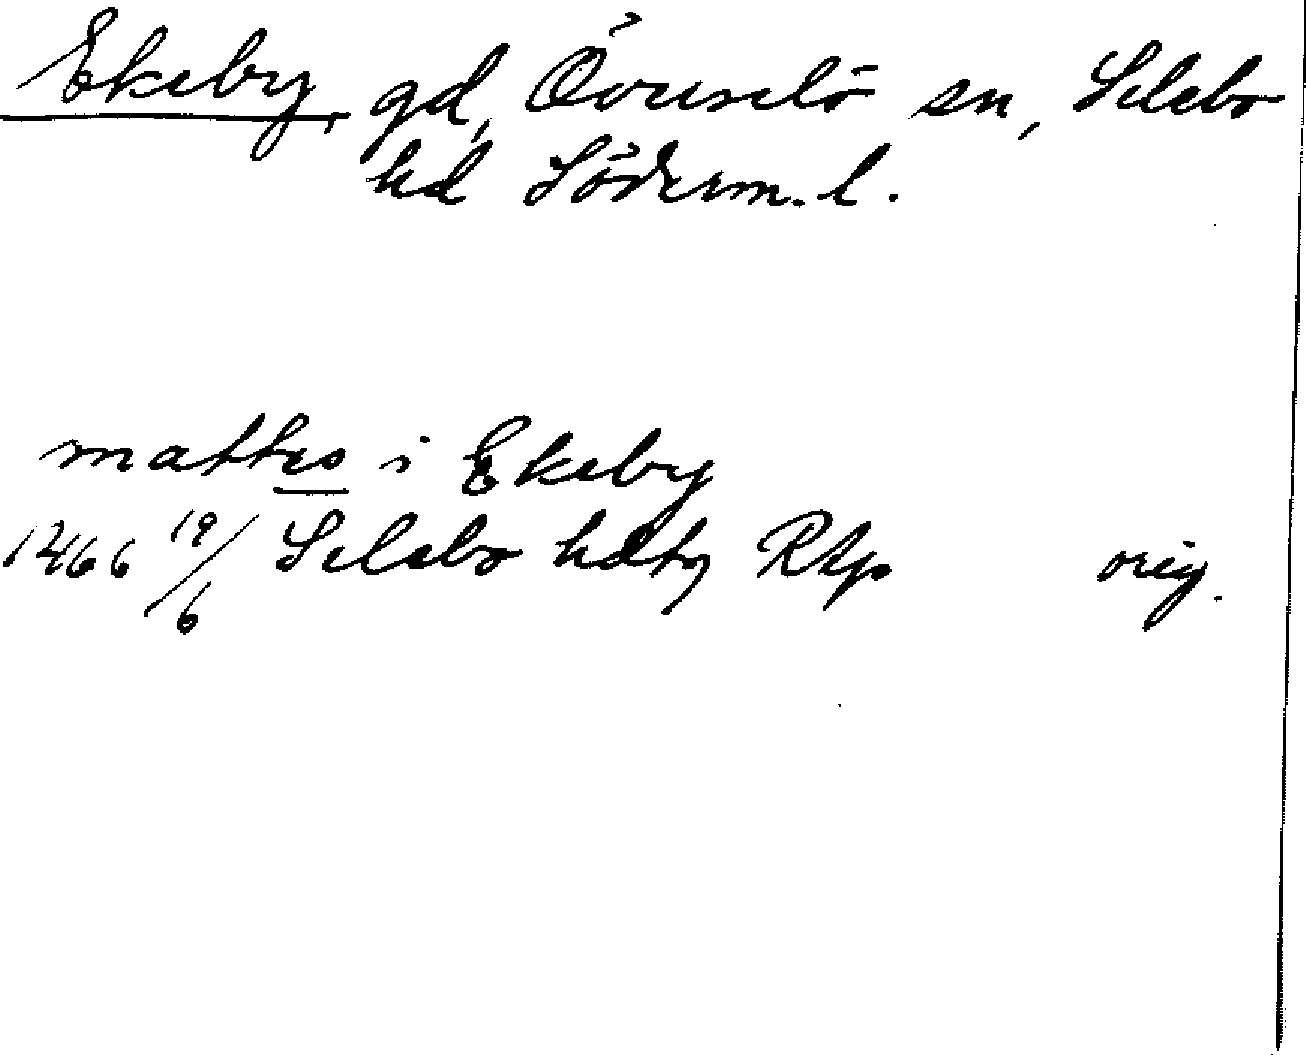 Ekeby, gd, Överselö sn, Selebo
hd Söderm. l.
mattes i Ekeby
1466 19/6 Selebo hdtg Rtp orig.